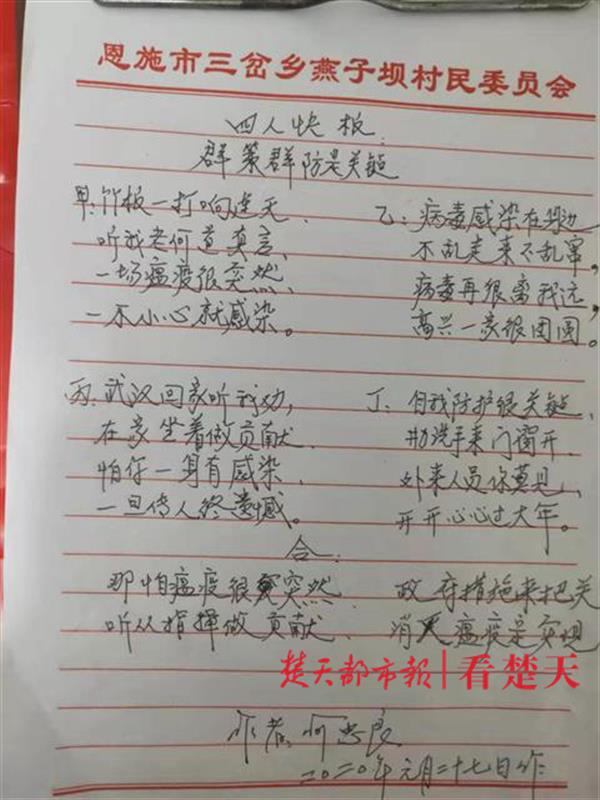 恩施市三岔乡燕子坝村民委员会
四人快板:
群策群防是关键
甲:竹板一打响连天、
听我老何道真言、
一场瘟疫很突然、
一不小心就感染。
乙:病毒感染在身边
不乱走来不乱窜,
病毒再狠离我远,
高兴一家很团圆。
丙:武汉回家听我劝,
在家坐着做贡献、
怕你一身有感染、
一旦传人终遗憾。
丁:自我防护很关键、
勤洗手来门窗开、
外来人员你莫见、
开开心心过大年。
合:
那怕瘟疫很突然、
政府措施来把关
听从指挥做贡献、
消灭瘟疫是实现
楚天都市报|看楚天
作者:何忠良
二〇二〇年元月二十七日作